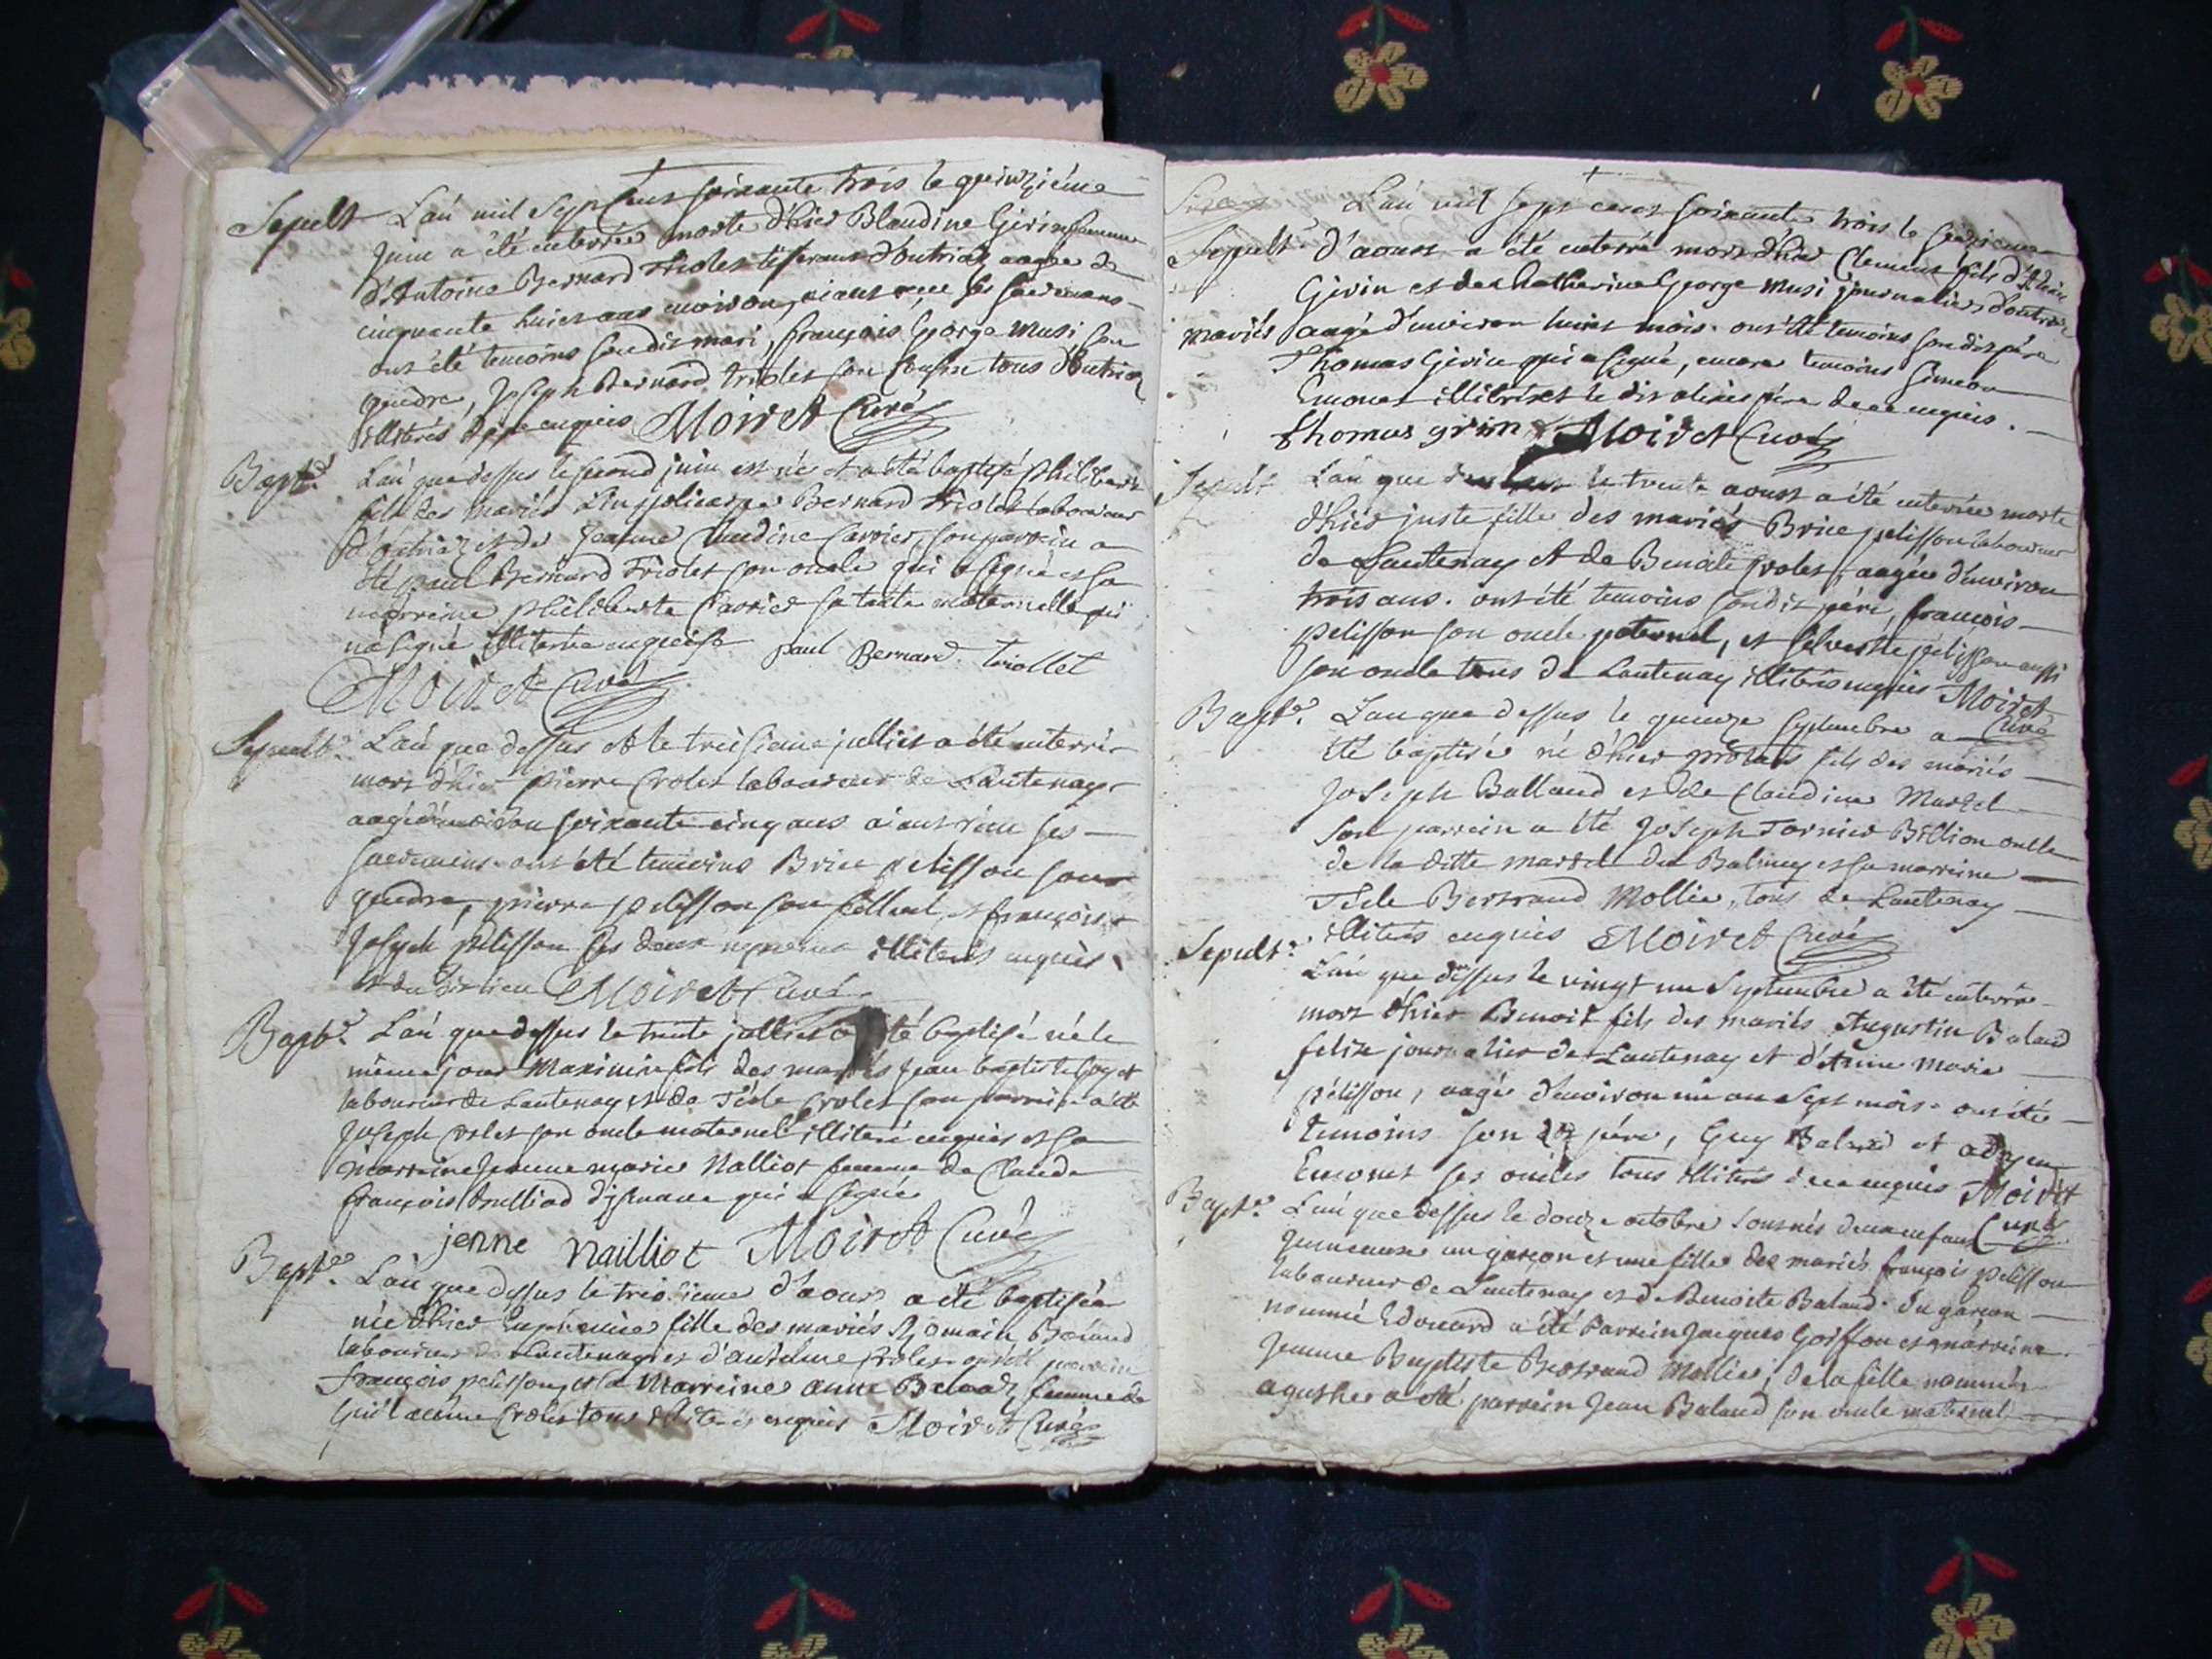 Sepult. L'an mil sept cens soixante trois le quinzième
juin a été enterrée morte d'hier Blandine Girin femme
d'Antoine Bernard triolet tisserant d'outriaz aagée de
cinquante huict ans environ, aiant receu ses sacremens
ont été temoins son dit mari, françois George Musi, son
gendre, Joseph Bernard triolet son cousin tous d'outriaz
illiterés de ce enquis Moiret Curé
Bapt. L'an que dessus le second juin est né et a été baptisé philibert
fils des mariés Bernard triolet laboureur
d'outriaz et de Jeanne Claudine Carrier, son parrein a
été paul Bernard triolet son oncle qui a signé et sa
marreine philiberte Carrier sa tante maternelle qui
n'a signé illiterée enquise paul Bernard triollet
Moiret Curé
Sepult. L'an que dessus et le treisieme jullict a été enterré
mort d'hier pierre Crolet laboureur de Lantenay
aagé d'environ soixante cinq ans aiant réçu ses
sacremens. ont été temoins Brice pelisson son
gendre, pierre pelisson son filleul, et françois
Joseph pelisson ses deux neveux illiterés enquis
et du dit lieu Moiret Curé
Bapt. L'an que dessus le trente jullict a été baptisé né le
même jour Maximin fils des mariés jean baptiste
laboureur de Lantenay et de Técle Crolet son parrein a été
joseph Crolet son oncle maternel illiteré enquis et sa
marreine Jeanne marie Nalliot femme de Claude
françois qui a signé
jenne nailliot Moiret Curé
Bapt. L'an que dessus le troisieme d'aoust a été baptisée
née d'hier fille des mariés Romain Balaud
laboureur de Lantenay et d'antoine Crolet a été parrein
françois pelisson, et sa Marreine anne Balaud, femme de
Guillaume Crolet tous illiterés enquis Moiret Curé
L'an mil sept cens soixante trois le seizieme
Sepult. d'aoust a été enterré mort d'hier Clement fils d'
Girin et de Catherine George Musi journalier d'outriaz
mariés aagé d'environ huict mois. ont été temoins son dit père
Thomas Girin qui a signé, encore temoins Simeon
Emonet illiterés et le dit père de ce enquis.
thomas girin Moiret Curé
Sepult. L'an que dessus le trente aoust a été enterrée morte
d'hier juste fille des mariés Brice pelisson laboureur
de Lantenay et de Benoite Crolet, aagée d'environ
trois ans. ont été temoins son dit père, françois
pelisson son oncle paternel, et silvestre pélisson aussi
son oncle tous de Lantenay illiterés enquis Moiret
Curé
Bapt. L'an que dessus le quinze septembre a
été baptisé né d'hier fils des mariés
Joseph Balland et de Claudine Martel
son parrein a été Joseph Tornier Billion oncle
de la ditte martel du Balmey et sa marreine
Técle Bertrand Mollie, tous de Lantenay
illiterés enquis Moiret Curé
Sepult. L'an que dessus le vingt un septembre a été enterré
mort d'hier Benoit fils des mariés Augustin Balaud
felix journalier de Lantenay et d'Anne Marie
pélisson, aagé d'environ un an sept mois. ont été
temoins son dit père, Guy Balaud et
Emonet ses oncles tous illiterés de ce enquis Moiret
Curé
Bapt. L'an que dessus le douze octobre sont nés deux enfans
jumeaux un garçon et une fille des mariés françois pelisson
laboureur de Lantenay et de Benoite Balaud. du garçon
nommé Edouard a été Parrein Jacques Goiffon et marreine
Jeanne Baptiste Bertrand Mollie; de la fille nommée
a été parrein Jean Balaud son oncle maternel